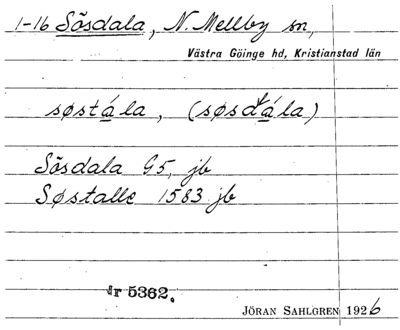 1-16 Sösdala, N. Mellby sn,
Västra Göinge hd, Kristianstad län
søstála, (søsdála)
Sösdala G5, jb
Søstalle 1583 jb
Nr 5362.
JÖRAN SAHLGREN 1926